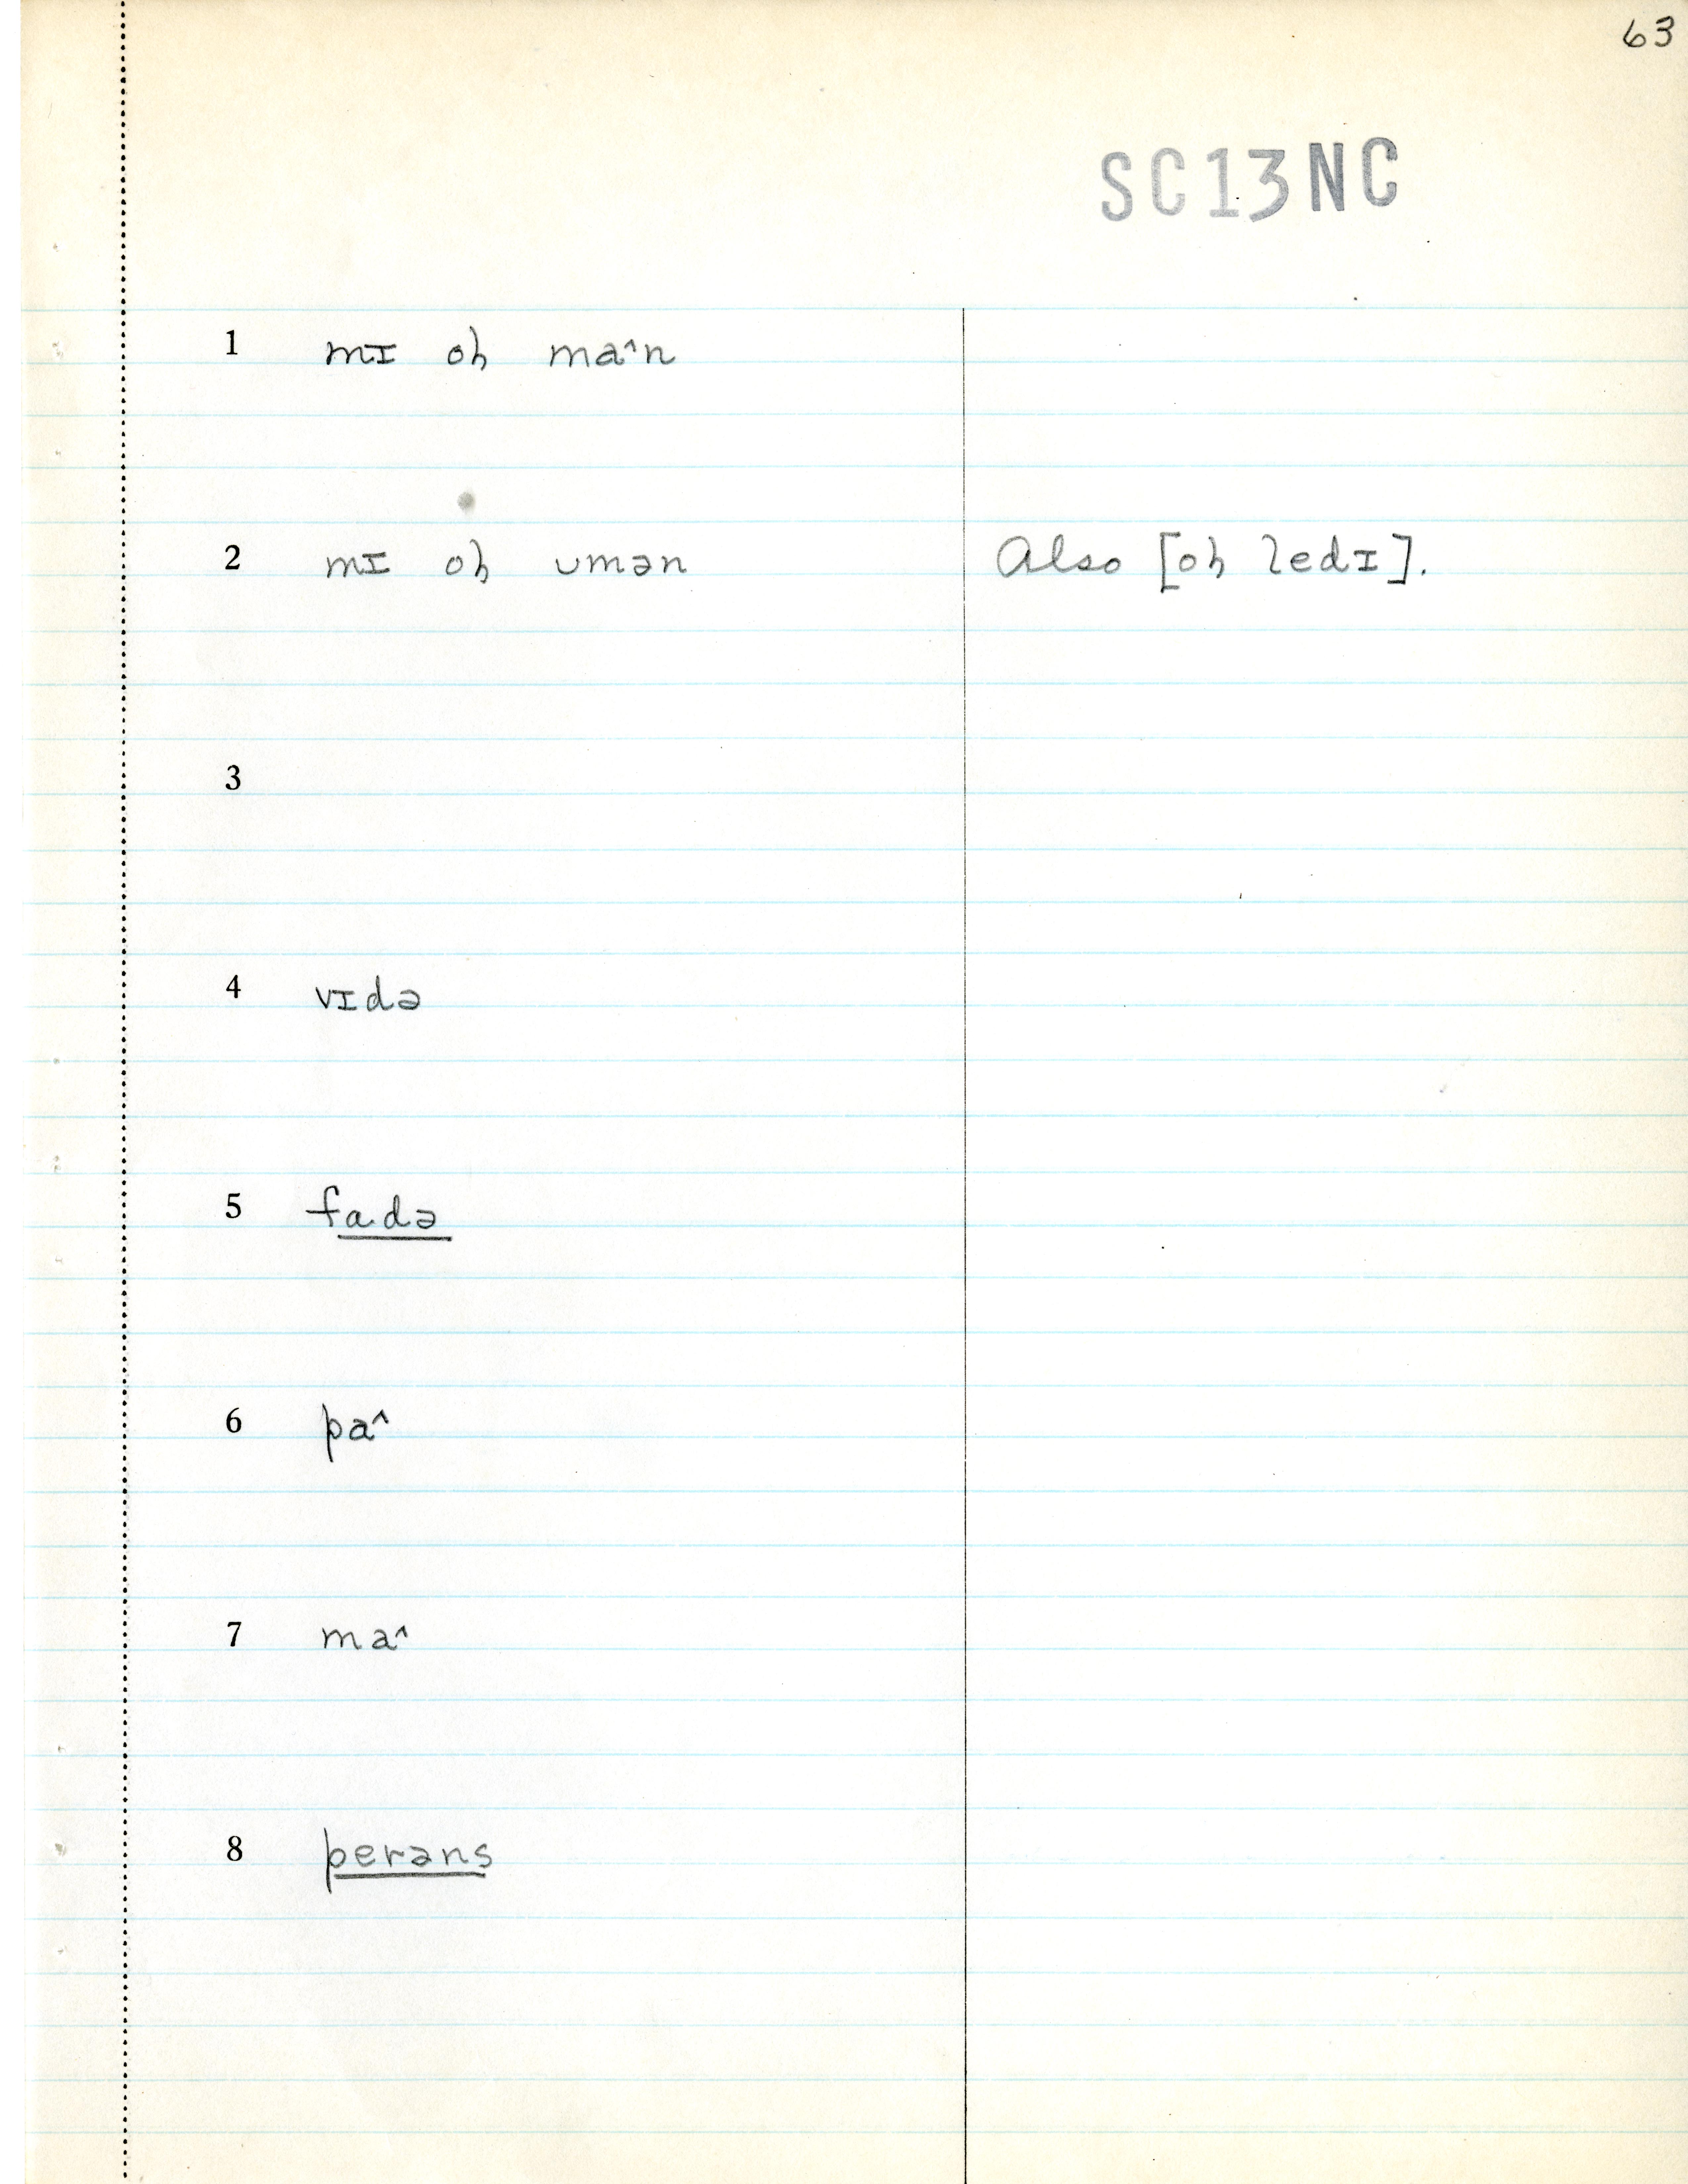 63
SC13NC
1 mɪ oɦ ma^n
2 mɪ oɦ ᴜmən Also [oɦ ledɪ].
3
4 vɪdə
5 fadə
6 pa^
7 ma^
8 perəns